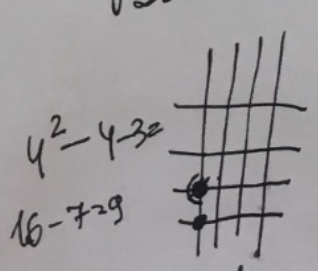 4² - 4-3=
16-7=9